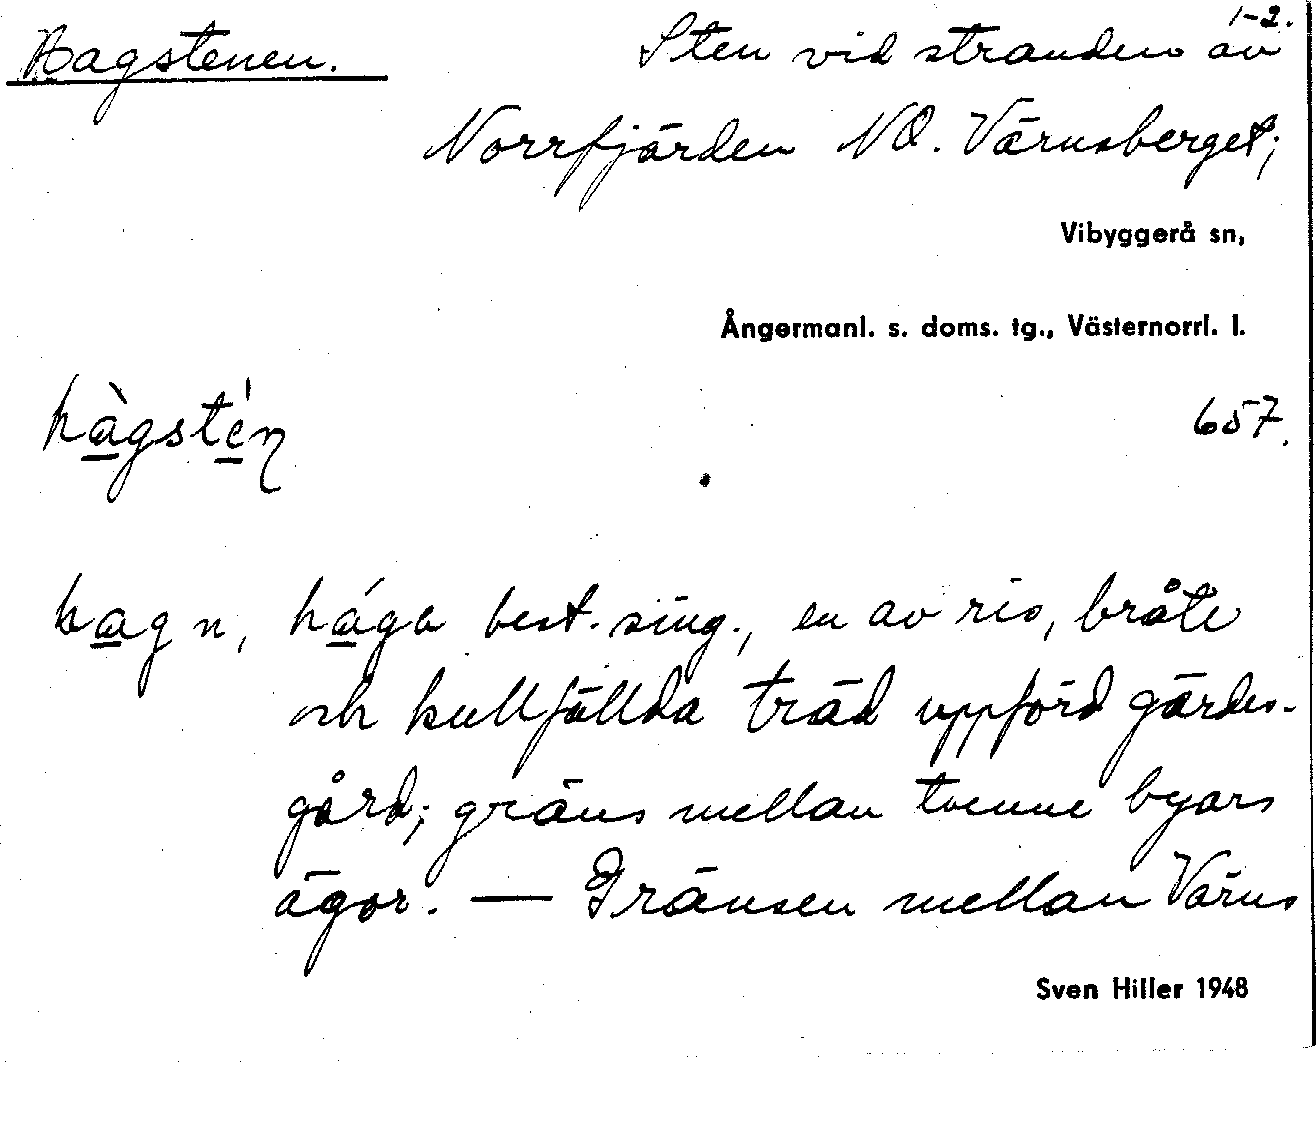 1-2.
Hagstenen. Sten vid stranden av
Norrfjärden NO. Värnsberget;
Vibyggerå sn,
Ångermanl. s. doms. tg., Västernorrl. l.
hàgsté́n 657.
hag n, hága best. sing., en av ris, bråte
och kullfällda träd uppförd gärdes-
gård; gräns mellan tvenne byars
ägor. — Gränsen mellan Värns
Sven Hiller 1948